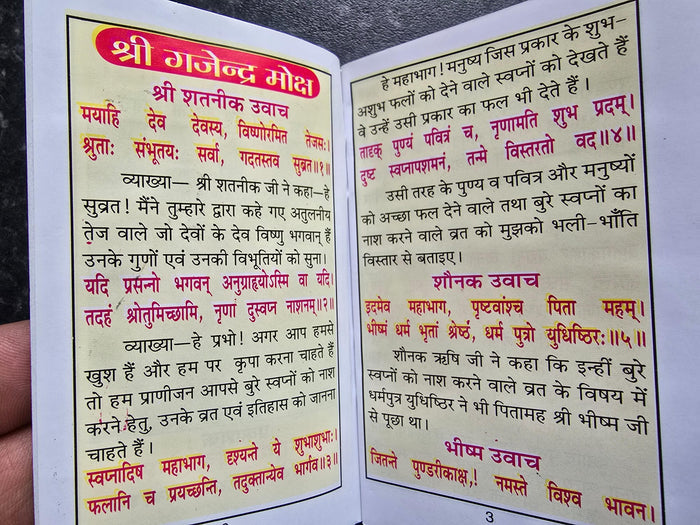 श्री गजेन्द्र मोक्ष
श्री शतनीक उवाच
मयाहि देव देवस्य, विष्णोरमित तेजसः।
श्रुताः संभूतयः सर्वा, गदतस्तव सुव्रत॥१॥
व्याख्या— श्री शतनीक जी ने कहा—हे
सुव्रत! मैंने तुम्हारे द्वारा कहे गए अतुलनीय
तेज वाले जो देवों के देव विष्णु भगवान् हैं
उनके गुणों एवं उनकी विभूतियों को सुना।
यदि प्रसन्नो भगवन् अनुग्राहयोऽस्मि वा यदि।
तदहं श्रोतुमिच्छामि, नृणां दुस्वप्न नाशनम्॥२॥
व्याख्या—हे प्रभो! अगर आप हमसे
खुश हैं और हम पर कृपा करना चाहते हैं
तो हम प्राणीजन आपसे बुरे स्वप्नों को नाश
करने हेतु, उनके व्रत एवं इतिहास को जानना
चाहते हैं।
स्वप्नादिष महाभाग, दृश्यन्ते ये शुभाशुभाः।
फलानि च प्रयच्छन्ति, तदुक्तान्येव भार्गव॥३॥
हे महाभाग! मनुष्य जिस प्रकार के शुभ-
अशुभ फलों को देने वाले स्वप्नों को देखते हैं
वे उन्हें उसी प्रकार का फल भी देते हैं।
तादृक् पुण्यं पवित्रं च, नृणामति शुभ प्रदम्।
दुष्ट स्वप्नापशमनं, तन्मे विस्तरतो वद॥४॥
उसी तरह के पुण्य व पवित्र और मनुष्यों
को अच्छा फल देने वाले तथा बुरे स्वप्नों का
नाश करने वाले व्रत को मुझको भली-भाँति
विस्तार से बताइए।
शौनक उवाच
इदमेव महाभाग, पृष्टवांश्च पिता महम्।
भीष्मं धर्म भृतां श्रेष्ठं, धर्म पुत्रो युधिष्ठिरः॥५॥
शौनक ऋषि जी ने कहा कि इन्हीं बुरे
स्वप्नों को नाश करने वाले व्रत के विषय में
धर्मपुत्र युधिष्ठिर ने भी पितामह श्री भीष्म जी
से पूछा था।
भीष्म उवाच
जितन्ते पुण्डरीकाक्ष,! नमस्ते विश्व भावन।
3